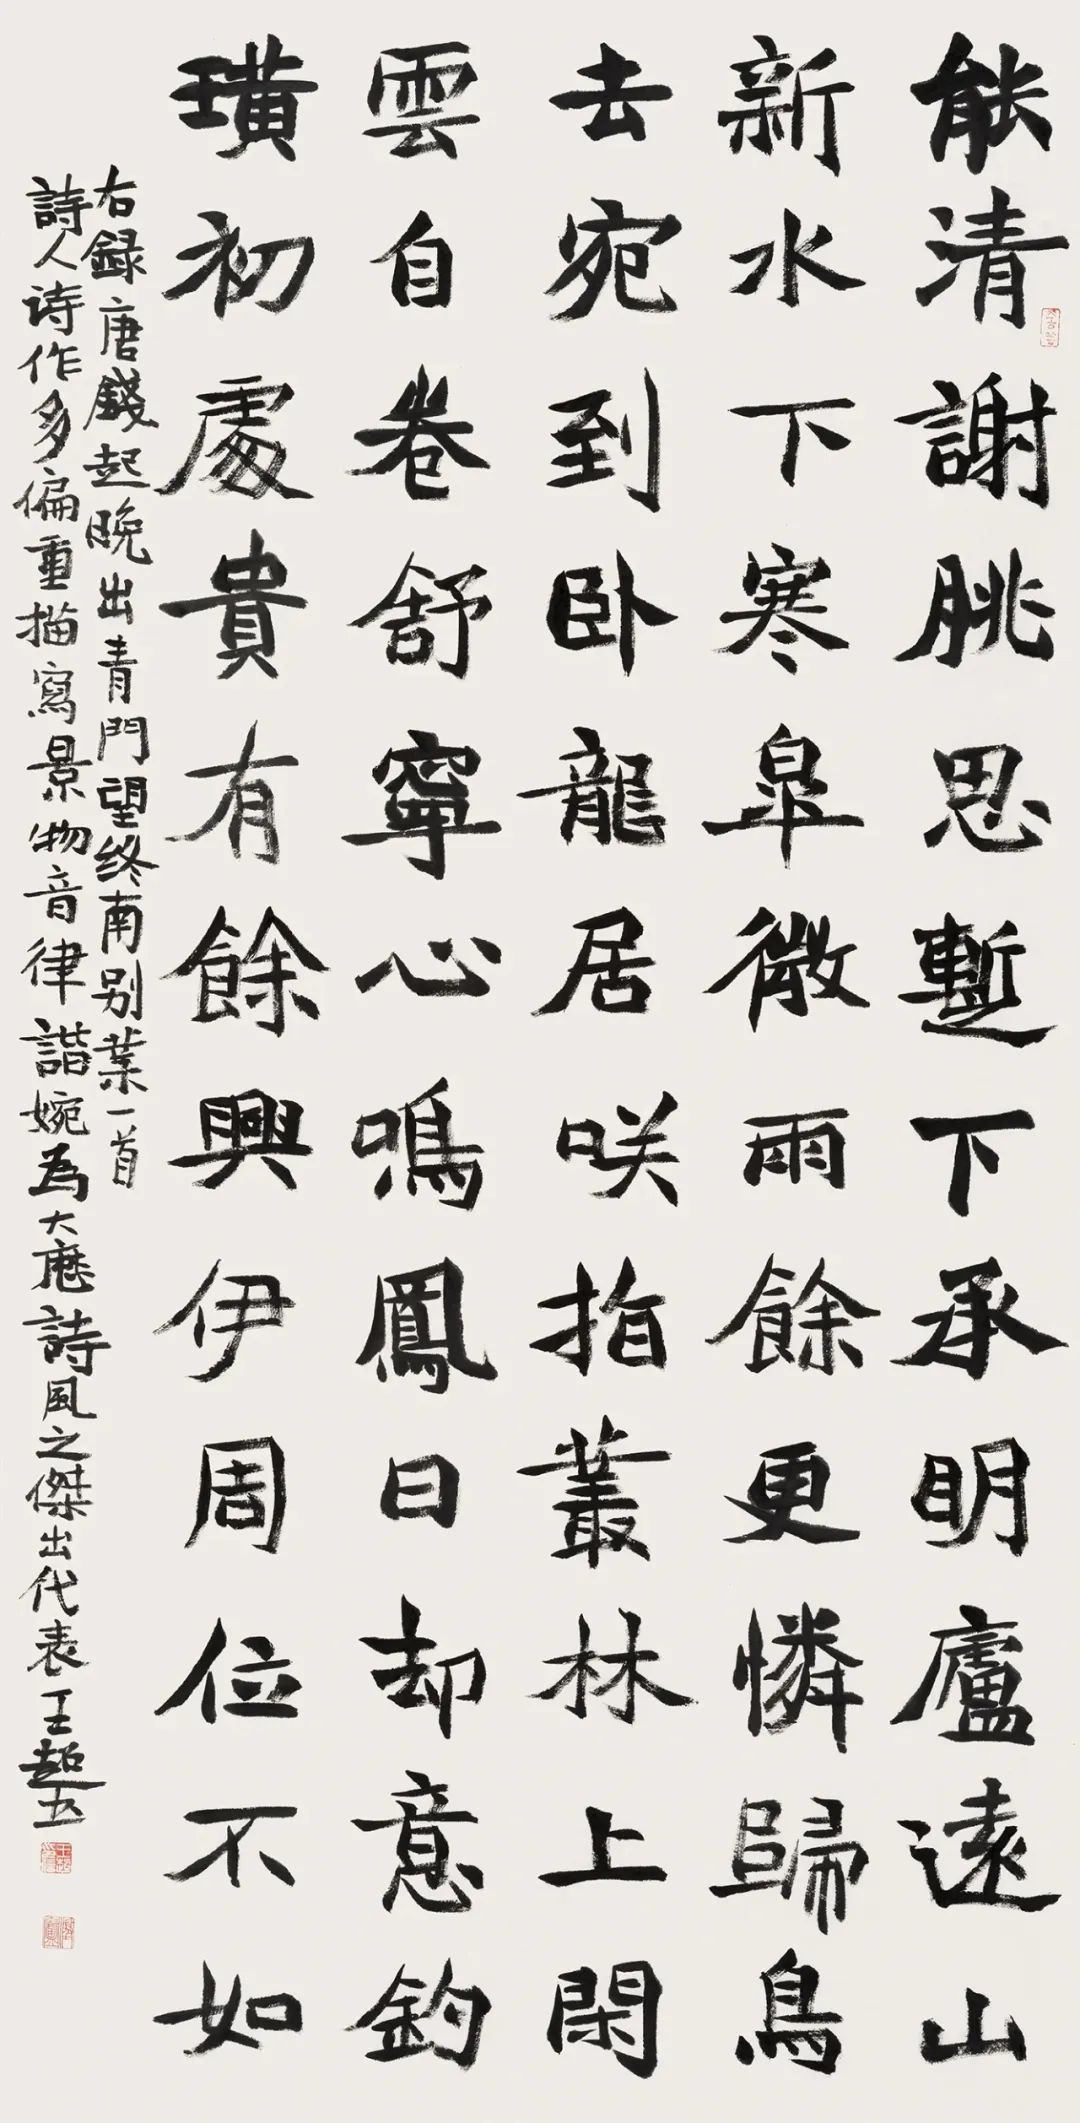 能清謝朓思暫下承明廬遠山
新水下寒皐微雨餘更憐歸鳥
去宛到卧龍居咲指叢林上閑
雲自卷舒寧心鳴鳳日却意釣
璜初處貴有餘興伊周位不如
右録唐錢起晚出青門望终南别業一首
詩人诗作多偏重描寫景物音律諧婉為大厯詩風之傑出代表王超